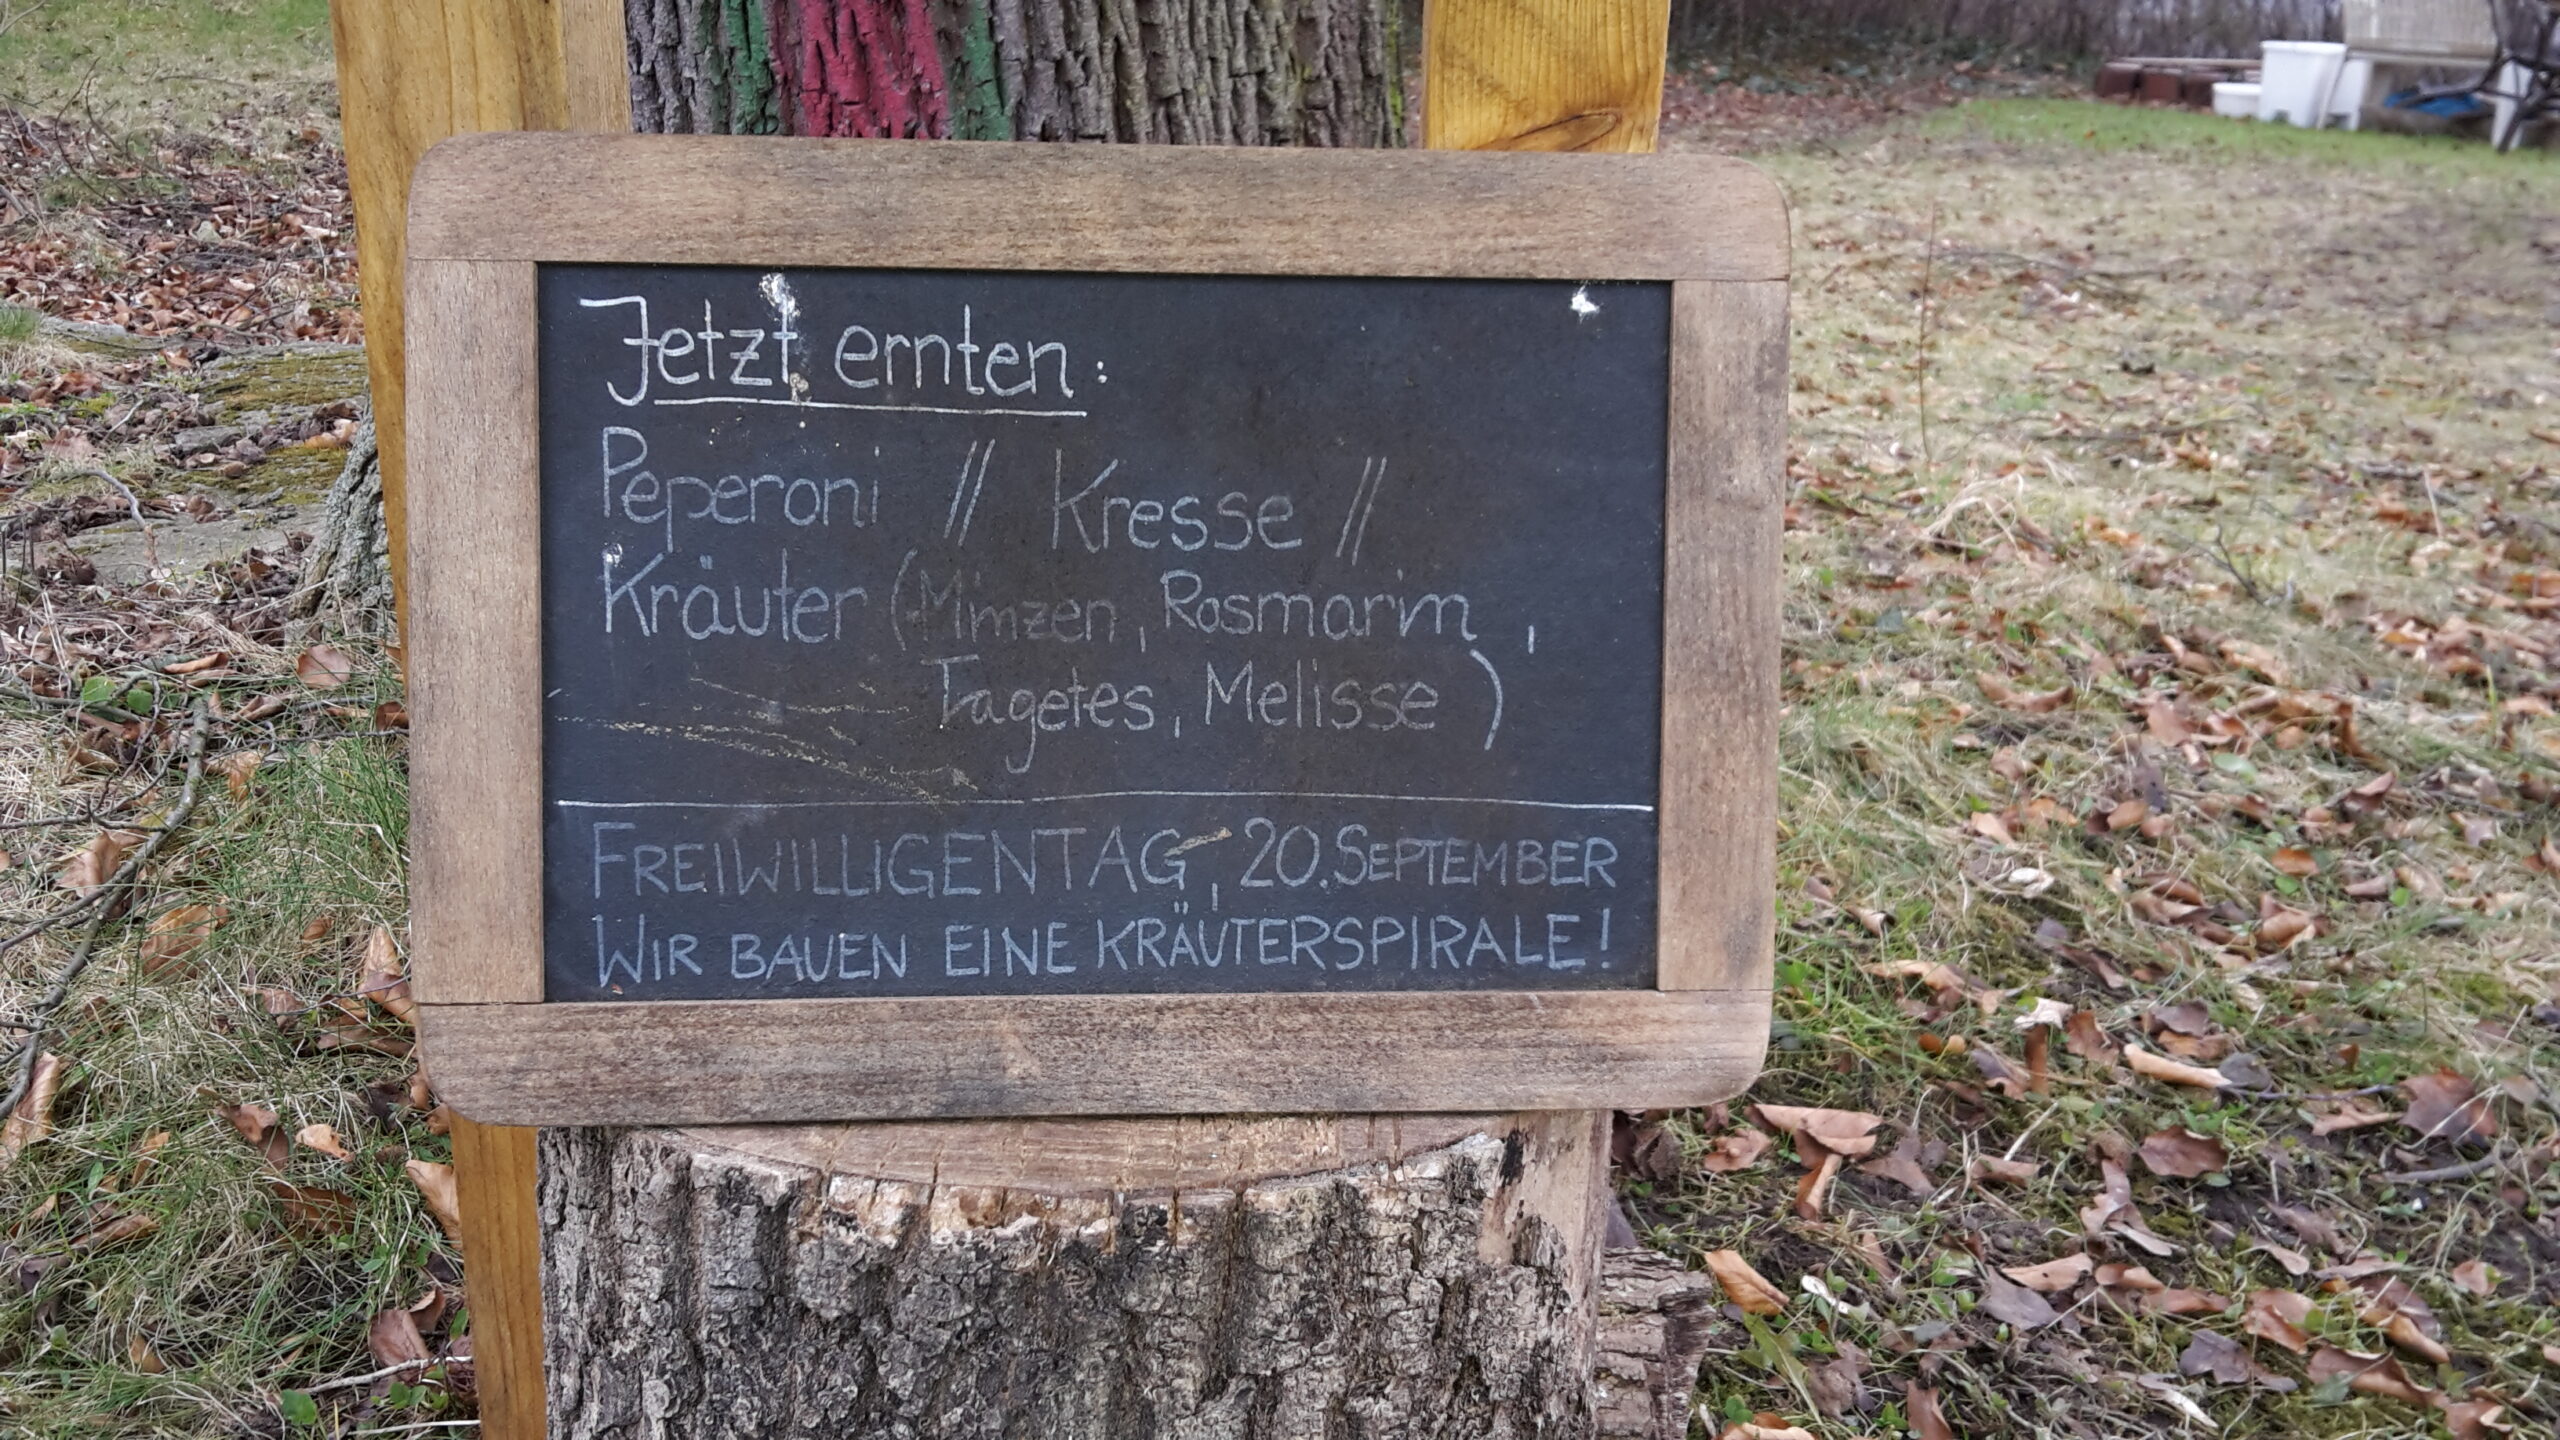 Jetzt ernten:
Peperoni // Kresse //
Kräuter (Minzen, Rosmarin,
Tagetes, Melisse)
FREIWILLIGENTAG, 20. SEPTEMBER
WIR BAUEN EINE KRÄUTERSPIRALE!